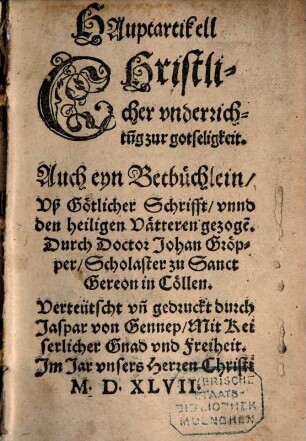 HAuptartikell
CHristli-
cher vnderrich-
tũg zur gotseligkeit.
Auch eyn Betbüchlein/
Vß Götlicher Schrifft/ vnnd
den heiligen Vätteren gezogẽ.
Durch Doctor Johan Gröp-
per/ Scholaster zu Sanct
Gereon in Cöllen.
Verteütscht vñ gedruckt durch
Jaspar von Gennep/ Mit Kei
serlicher Gnad vnd Freiheit.
Im Jar vnsers Herren Christi
M. D. XLVII.
BAYERISCHE
STAATS-
BIBLIOTHEK
MUENCHEN